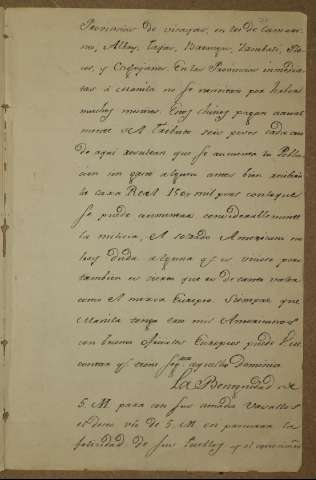 Provincias de visayas, en los de Camari-
no, Albay, Tayas, Batangas, Zambali, Ylo-
cos, y Cagayanes. En las Provincias inmedia-
tas á Manila no se necesitan por haber
muchos mestizos. Estos chinos pagan anual
mente de Tributo seis pesos cada uno
de aqui resultan que se aumenta la Pobla-
cion sin gasto alguno antes bien recibira
la caxa Real 150 mil pesos con lo que
se puede aumentar considerablemente
la milicia, el soldado Americano no
hay duda alguna q.e es vicioso pero
tambien es cierto que es de tanto valor
como el mexor Europeo. Siempre que
Manila tenga tres mil Americanos
con buenos oficiales Europeos puede V.
contar q.e tiene seg.mte aquellos Dominio
La Benignidad de
S. M. para con sus amados Vasallos
el deseo de S. M. en procurar la
felicidad de sus Pueblos y el conocimien